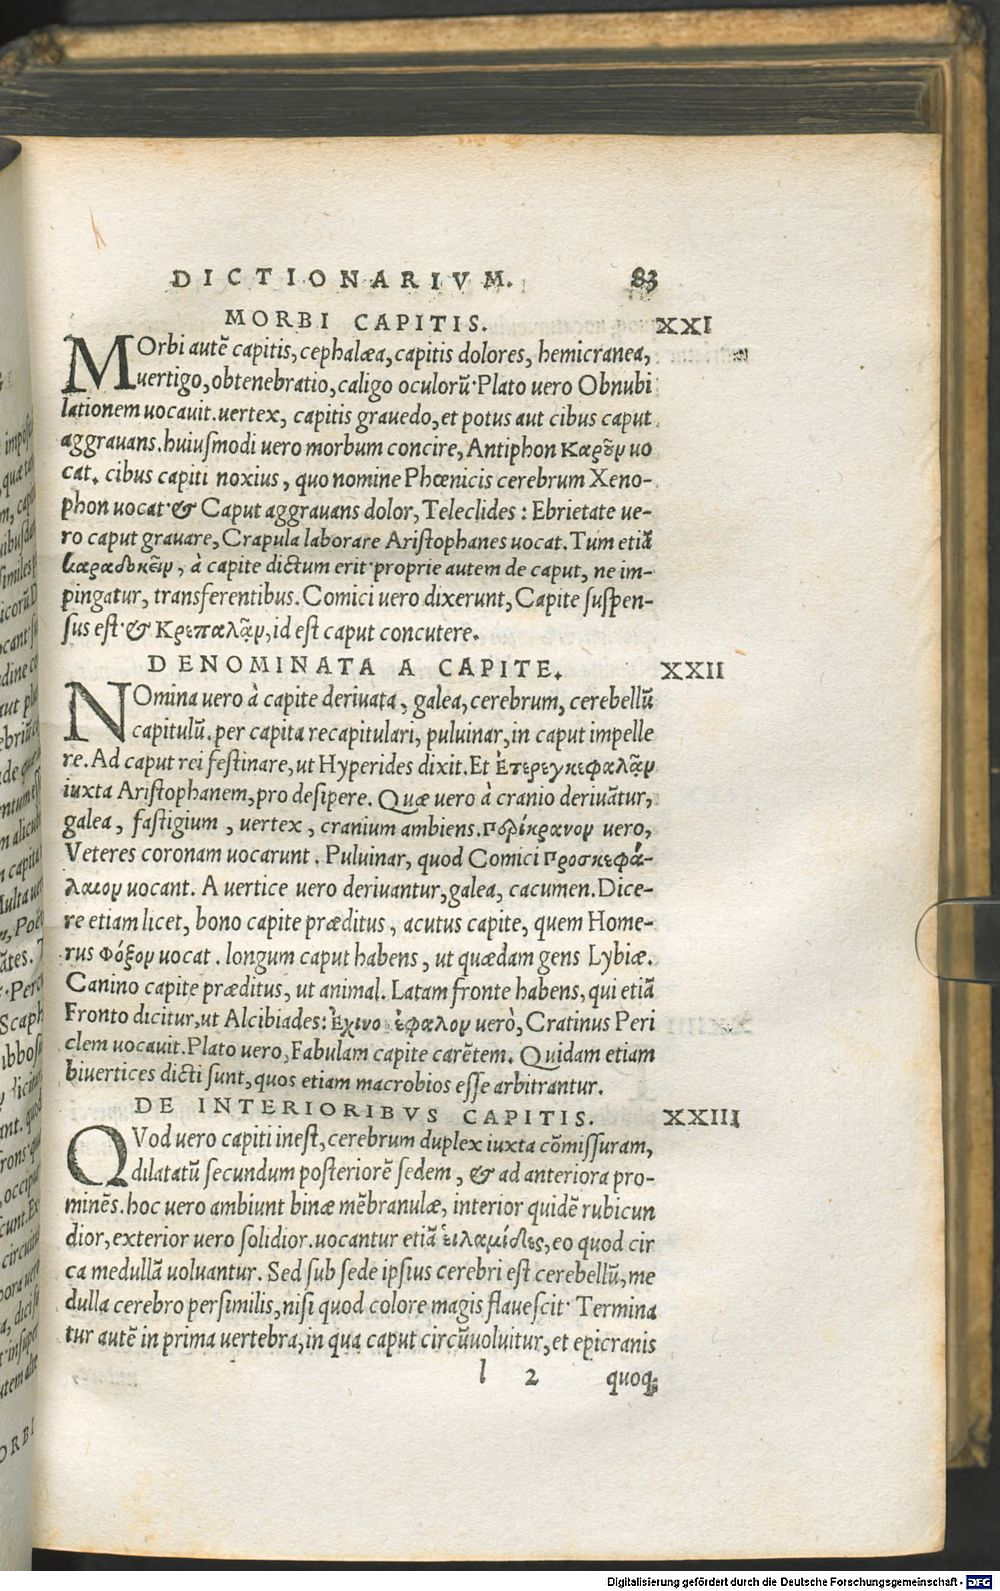 DICTIONARIVM. 83
MORBI CAPITIS. XXI
MOrbi autē capitis, cephalæa, capitis dolores, hemicranea,
uertigo, obtenebratio, caligo oculorū· Plato uero Obnubi
lationem uocauit. uertex, capitis grauedo, et potus aut cibus caput
aggrauans. huiuſmodi uero morbum concire, Antiphon Καρȣ̃ν uo
cat. cibus capiti noxius, quo nomine Phœnicis cerebrum Xeno-
phon uocat· & Caput aggrauans dolor, Teleclides: Ebrietate ue-
ro caput grauare, Crapula laborare Ariſtophanes uocat. Tum etiā
καραδοκεῖν, à capite dictum erit· proprie autem de caput, ne im-
pingatur, transferentibus. Comici uero dixerunt, Capite ſuſpen-
ſus eſt· & Κρεπαλᾶν, id eſt caput concutere.
DENOMINATA A CAPITE. XXII
NOmina uero à capite deriuata, galea, cerebrum, cerebellū
capitulū. per capita recapitulari, puluinar, in caput impelle
re. Ad caput rei feſtinare, ut Hyperides dixit. Et ἑτερεγκεφαλᾶν
iuxta Ariſtophanem, pro deſipere. Quæ uero à cranio deriuātur,
galea, faſtigium, uertex, cranium ambiens. περίκρανον uero,
Veteres coronam uocarunt. Puluinar, quod Comici προσκεφά-
λαιον uocant. A uertice uero deriuantur, galea, cacumen. Dice-
re etiam licet, bono capite præditus, acutus capite, quem Home-
rus Φόξον uocat. longum caput habens, ut quædam gens Lybiæ.
Canino capite præditus, ut animal. Latam fronte habens, qui etiā
Fronto dicitur, ut Alcibiades: Ἐχινο κέφαλον uerò, Cratinus Peri
clem uocauit. Plato uero, Fabulam capite carētem. Quidam etiam
biuertices dicti ſunt, quos etiam macrobios eſſe arbitrantur.
DE INTERIORIBVS CAPITIS. XXIII
QVod uero capiti ineſt, cerebrum duplex iuxta cōmiſſuram,
dilatatū ſecundum poſteriorē ſedem, & ad anteriora pro-
minēs. hoc uero ambiunt binæ mēbranulæ, interior quidē rubicun
dior, exterior uero ſolidior. uocantur etiā εἱλαμίδες, eo quod cir
ca medullā uoluantur. Sed ſub ſede ipſius cerebri eſt cerebellū, me
dulla cerebro perſimilis, niſi quod colore magis flaueſcit· Termina
tur autē in prima uertebra, in qua caput circūuoluitur, et epicranis
l 2 quoq;
Digitalisierung gefördert durch die Deutsche Forschungsgemeinschaft - DFG